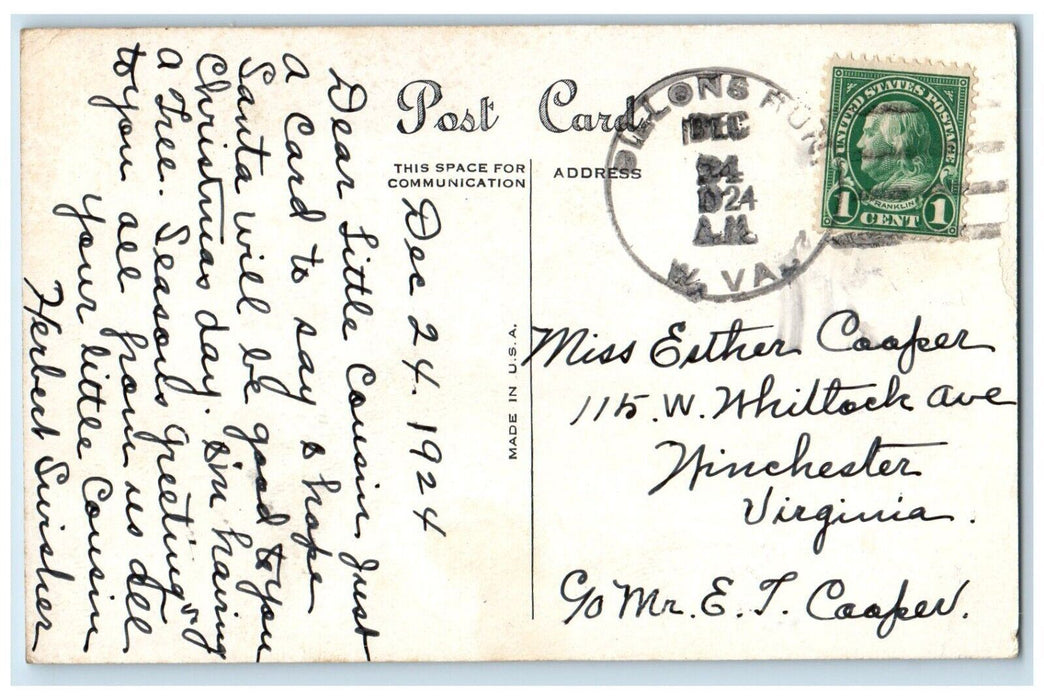 Post Card
THIS SPACE FOR
COMMUNICATION
ADDRESS
MADE IN U.S.A.
DILLONS RUN
DEC
24
1924
A.M.
W. VA.
UNITED STATES POSTAGE
FRANKLIN
1 CENT 1
Dec 24. 1924
Dear Little Cousin, Just
a Card to say & hope
Santa will be good to you
Christmas day. Im having
a Tree. Seasons Greetings
to you all from us all
your little Cousin
Herbert Swisher
Miss Esther Cooper
115. W. Whittock ave
Winchester
Virginia.
c/o Mr. E. T. Cooper.